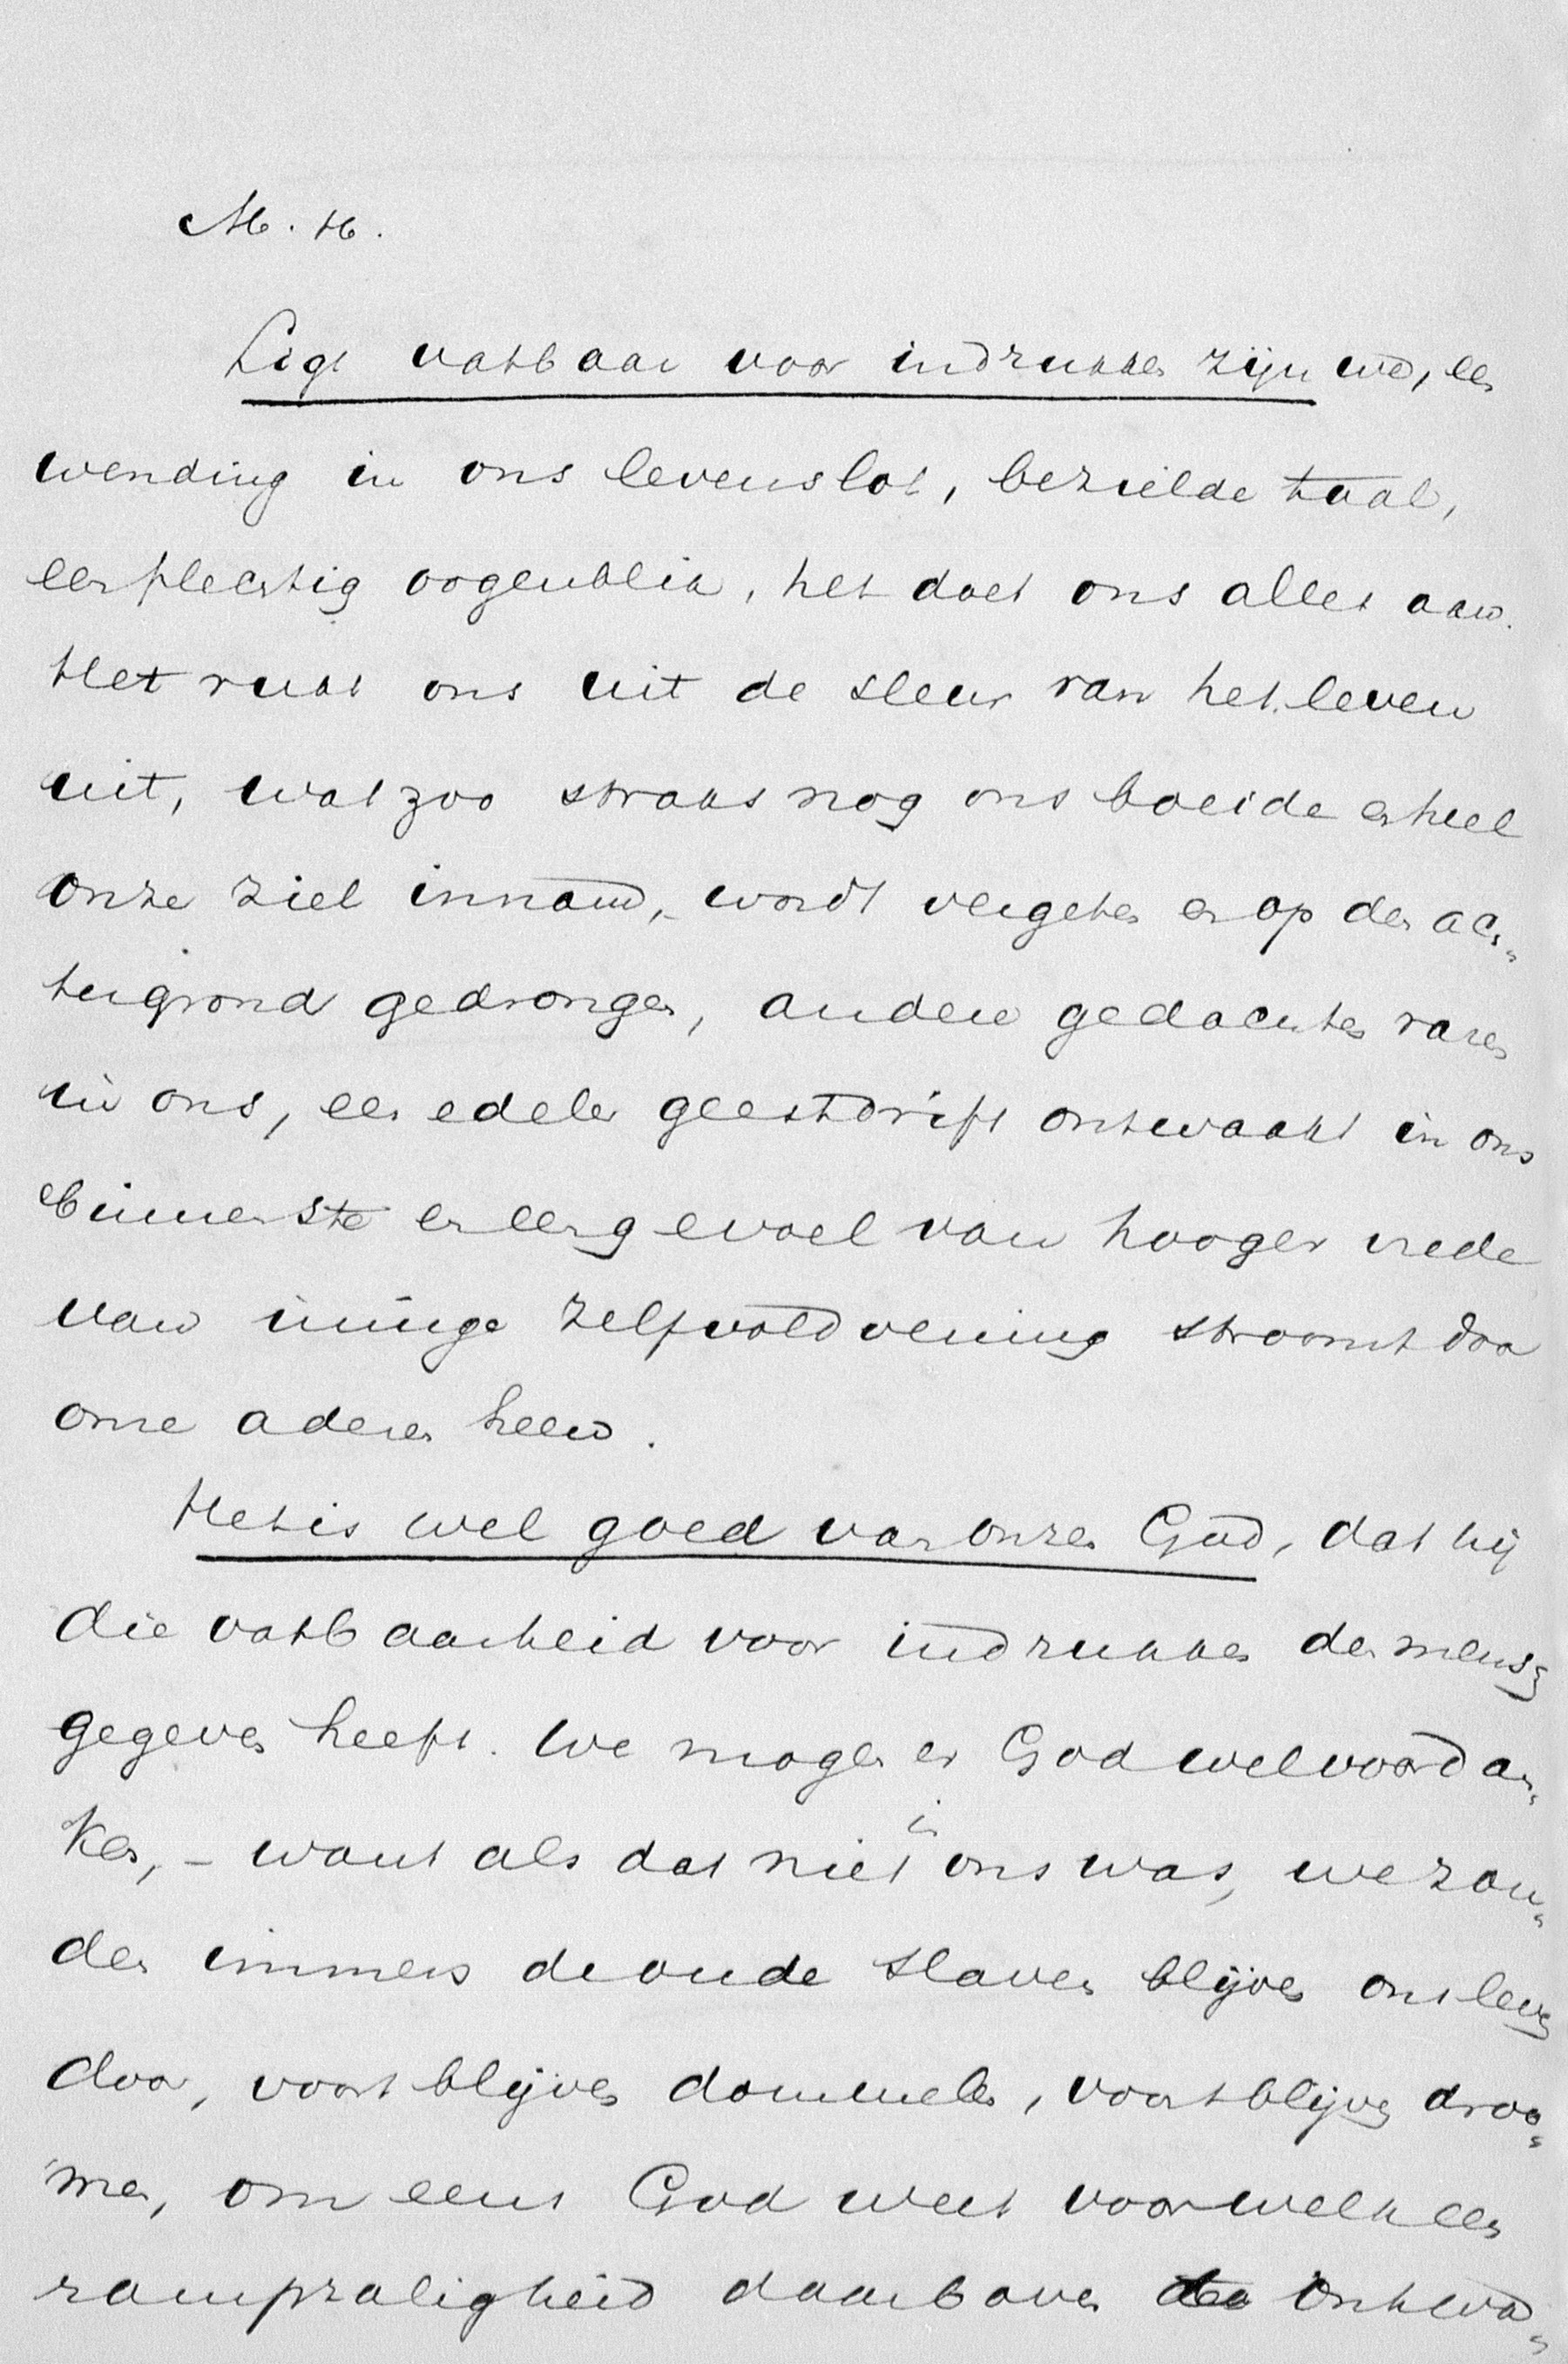 M. H.
Ligt vatbaar voor indrukken zijn we, een
wending in ons levenslot, bezielde taal,
een plechtig oogenblik, het doet ons alles aan.
Het rukt ons uit de sleur van het leven
uit, wat zoo straks nog ons boeide en heel
onze ziel innam, - wordt vergeten en op den ach„
tergrond gedrongen, andere gedachten varen
in ons, een edeler geestdrift ontwaakt in ons
binnenste en een gevoel van hooger vrede
van innige zelfvoldoening stroomt door
onze aderen heen.
Het is wel goed van onzen God, dat hij
die vatbaarheid voor indrukken den mensch
gegeven heeft. We mogen er God wel voor dan„
ken, - want als dat niet in ons was, we zou„
den immers de oude slaven blijven ons leven
door, voort blijven dommelen, voort blijven droo„
men, om eens God weet voor welk een
rampzaligheid daarboven te ontwa„